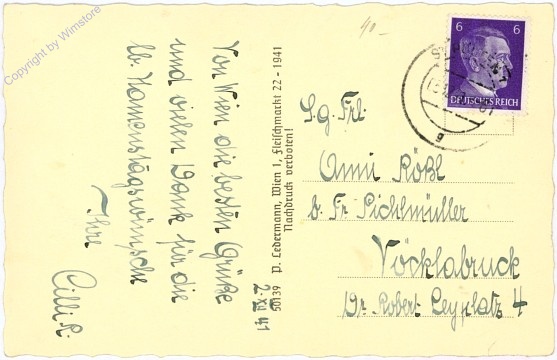 Copyright by Wimstore
Von Wien die besten Grüße
und vielen Dank für die
lb. Namenstagswünsche
Ihre
Cilli R.
2. XII 41
50139 P. Ledermann, Wien 1, Fleischmarkt 22 - 1941
Nachdruck verboten!
40.-
6 6
DEUTSCHES REICH
g
S. g. Frl.
Anni Rößl
b. Fr Pichlmüller
Vöcklabruck
Dr. Robert Leyplatz 4